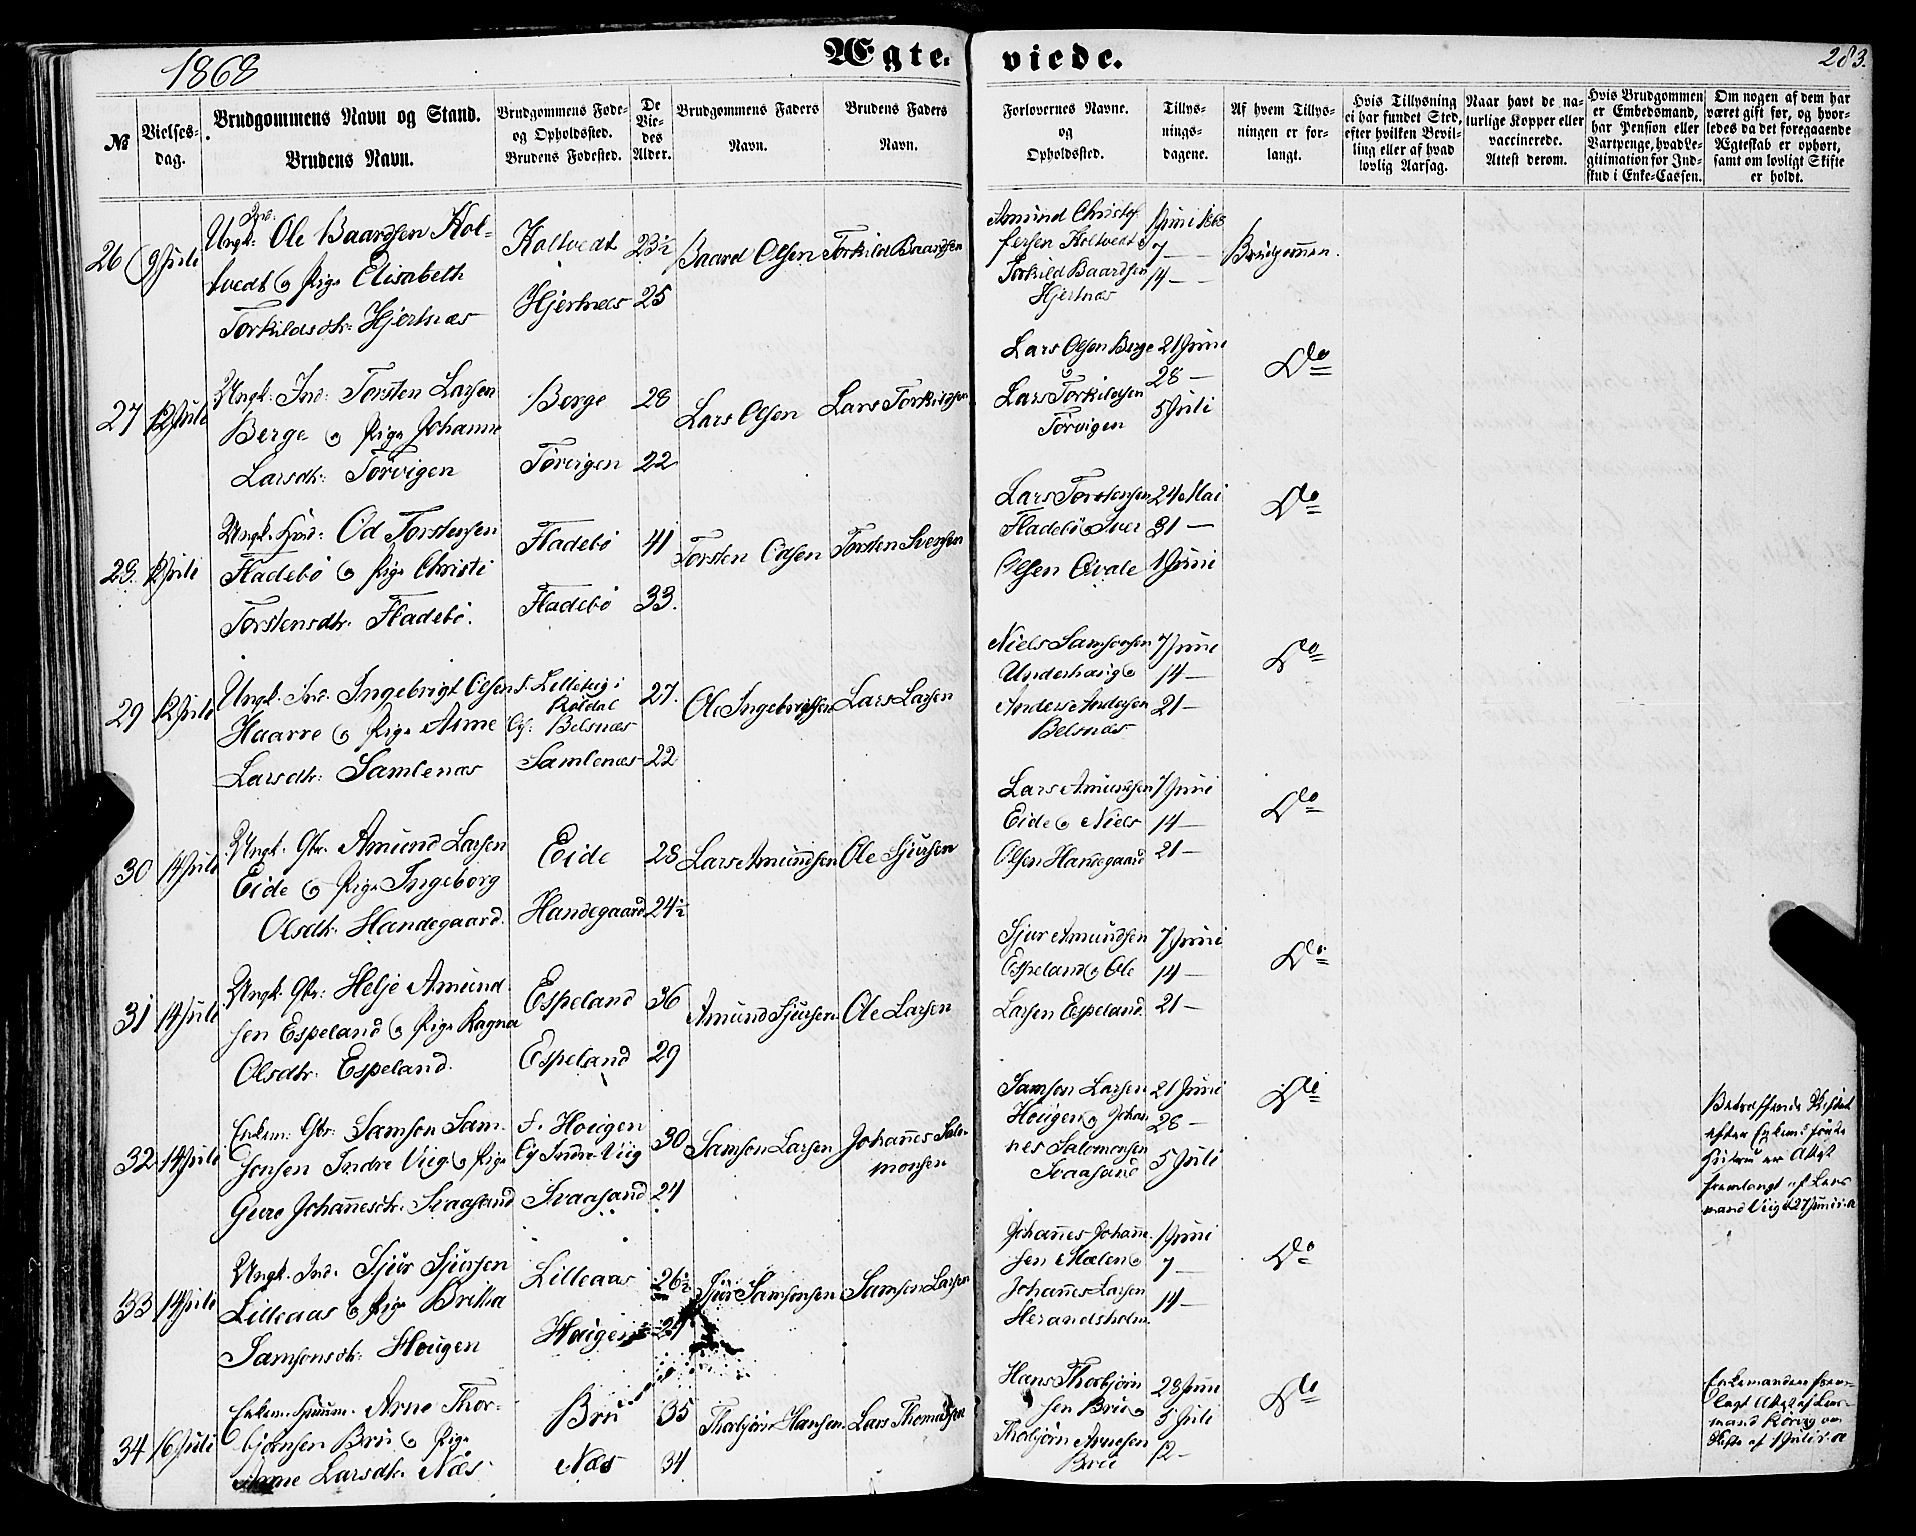 1868
Ægte-viede.
283.
№
Vielses-dag.
Brudgommens Navn og Stand.
Brudens Navn.
Brudgommens Føde- og Opholdssted.
Brudens Fødested.
De Vie-des Alder.
Brudgommens Faders Navn.
Brudens Faders Navn.
Forlovernes Navne. og Opholdssted.
Tillys-nings-dagene.
Af hvem Tillys-ningen er for-langt.
Hvis Tillysning ei har fundet Sted, efter hvilken Bevil-ling eller af hvad lovlig Aarsag.
Naar havt de na-turlige Kopper eller vaccinerede. Attest derom.
Hvis Brudgommen er Embedsmand, har Pension eller Vartpenge, hvad Le-gitimation for Ind-skud i Enke-Cassen.
Om nogen af dem har været gift før, og hvor-ledes da det foregaaende Ægteskab er ophørt, samt om lovligt Skifte er holdt.
26 9 Juli
Ungk: Ole Baardsen Kol-
tvedt og Pige Elisabeth
Torkildsdtr: Hjertnæs
Koltvedt 23½
Hjertnæs 25
Baard Olsen Torkild Baardsen
Amund Christof 1 Juni 1868
fersen Koltvedt & 7 —
Torkild Baardsen 14 —
Hjertnæs
Brudgommen.
27 12 Juli
Ungk: Ind: Torsten Larsen
Berge og Pige Johanne
Larsdtr: Torvigen
Berge 28
Torvigen 22
Lars Olsen Lars Torkildsen
Lars Olsen Berge 21 Juni
& 28 —
Lars Torkildsen 5 Juli
Torvigen
Do
28. 12 Juli
Ungk. Od Torstensen
Fladebö og Pige Christi
Torstensdtr. Fladebö.
Fladebö 41
Fladebö 33.
Torsten Odsen Torsten Svensen
Lars Torstensen 24 Mai
Fladebö & Iver 31 —
Olsen Qvale 1 Juni
Do
29 12 Juli
Ungk. Ind. Ingebrigt Olsen
Haarre og Pige Anne
Larsdtr: Samlenæs
f. Lilleteig i
Røldal 27.
Op: Belsnæs
Samlenæs 22
Ole Ingebrigtsen Lars Larsen
Niels Samsonsen 7 Juni
Underhaug & 14 —
Anders Andersen 21 —
Belsnæs
Do
30 14 Juli
Ungk. Gbr. Amund Larsen
Eide og Pige Ingeborg
Olsdtr. Handegaard.
Eide 28
Handegaard 24½
Lars Amundsen Ole Sjursen
Lars Amundsen 7 Juni
Eide & Niels 14 —
Olsen Handegaard 21 —
Do
31 14 Juli
Ungk. Gbr: Helje Amund-
sen Espeland og Pige Ragna
Olsdtr. Espeland.
Espeland 36
Espeland 29
Amund Sjursen Ole Larsen
Sjur Amundsen 7 Juni
Espeland & Ole 14 —
Larsen Espeland. 21 —
Do
32 14 Juli
Enkem: Gbr: Samson Sam-
sonsen Indre Viig og Pige
Guro Johannesdtr. Svaasand
f. Hougen 30
Op Indre Viig
Svaasand 24
Samson Larsen Johannes Salo-
monsen
Samson Larsen 21 Juni
Hougen & Johan 28 —
nes Salomonsen
Svaasand 5 Juli
Do
Betræffende Skiftet
efter Enkem: første
Hustru er Attest
fremlagt af Lens
mand Viig 27 Juni d. A
33 14 Juli
Ungk. Ind. Sjur Sjursen
Lilleaas og Pige Britha
Samsonsdtr: Hougen
Lilleaas 26½
Hougen 24
Sjur Samsonsen Samson Larsen
Johannes Johanne 1 Juni
sen Mælen & 7 —
Johannes Larsen 14 —
Herandsholm.
Do
34 16 Juli
Enkem. Huusm. Arne Thor-
bjørnsen Bru og Pige
Anne Larsdtr. Næs
Bru 35
Næs 34
Thorbjørn Hansen. Lars Thomassen
Hans Thorbjørn 28 Juni
sen Bru & 5 Juli
Thorbjørn Arnesen 12 —
Bru
Do
Enkemanden frem-
lagt Attest af Lens-
mand om
Skifte af 1 Juli d. A